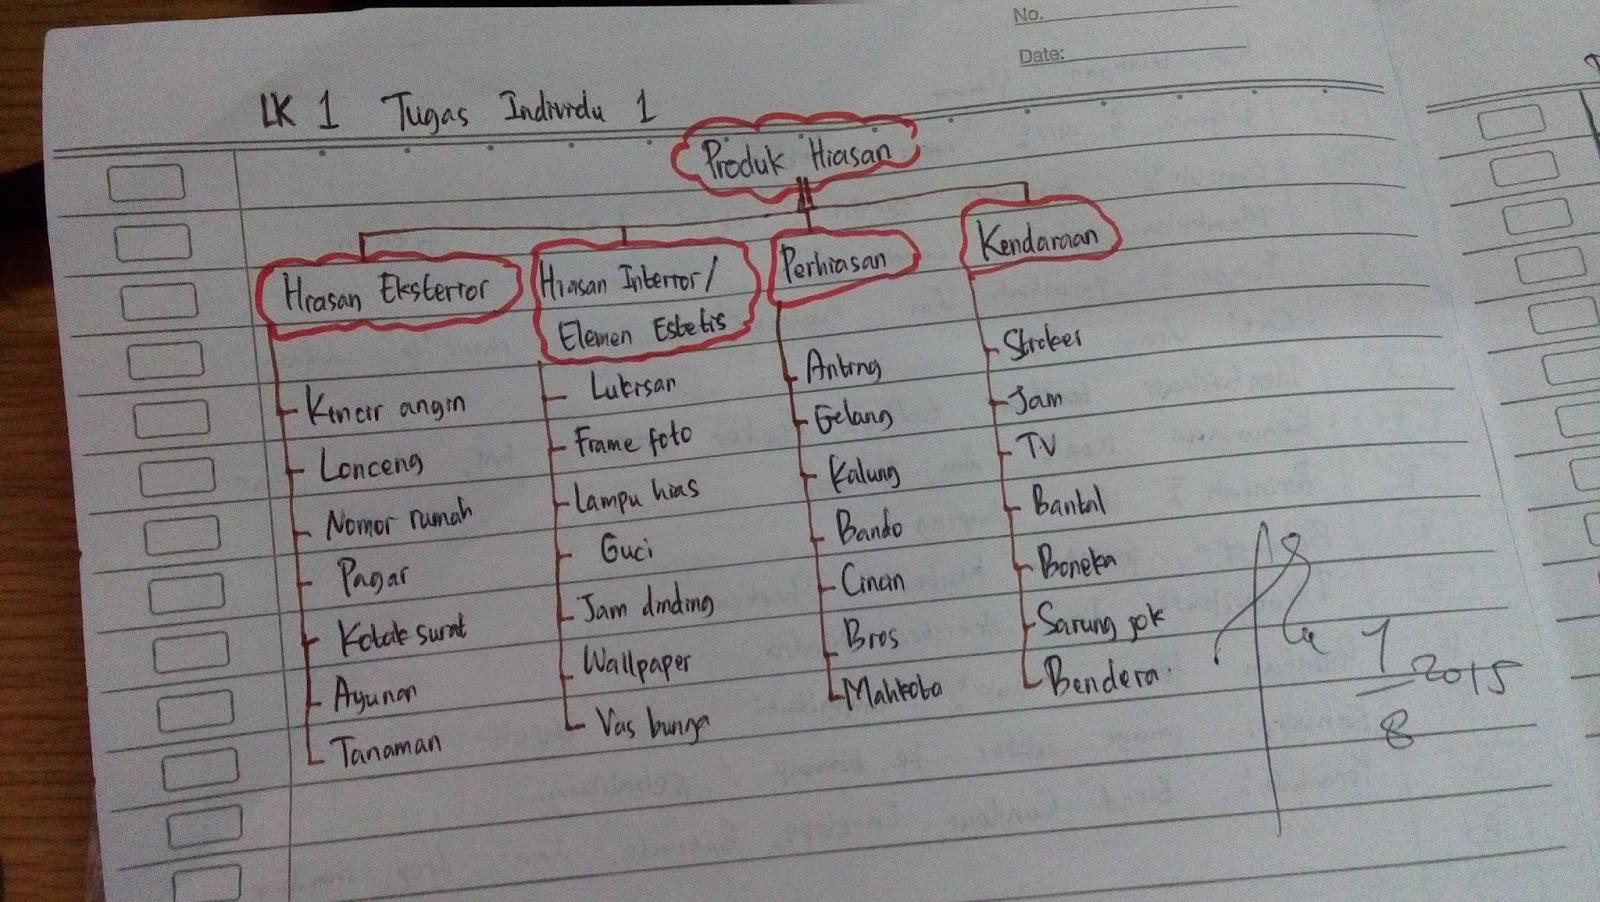 No.
Date:
LK 1 Tugas Individu 1
Produk Hiasan
Hiasan Eksterior
Kincir angin
Lonceng
Nomor rumah
Pagar
Kotak surat
Ayunan
Tanaman
Hiasan Interior/
Elemen Estetis
Lukisan
Frame foto
Lampu hias
Guci
Jam dinding
Wallpaper
Vas bunga
Perhiasan
Anting
Gelang
Kalung
Bando
Cincin
Bros
Mahkota
Kendaraan
Stiker
Jam
TV
Bantal
Boneka
Sarung jok
Bendera.
2015
8